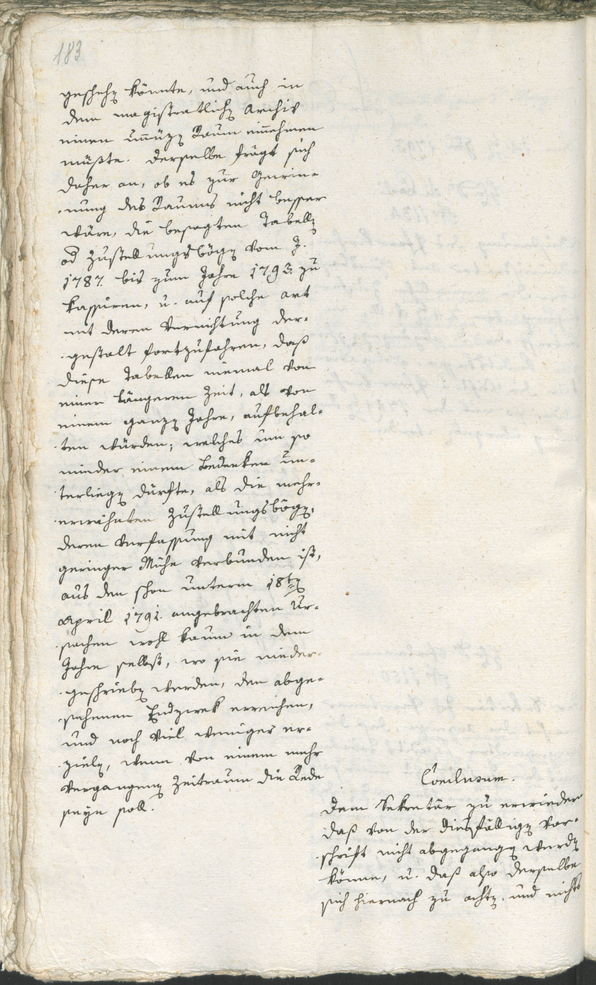 183
geschehen könnte, und auch in
dem magistratlichen Archiv
einen unnützen Raum einnehmen
müßte. Derselbe frägt sich
daher an, ob es zur Gewin-
nung des Raums nicht besser
wäre, die besagten Tabellen
od Zustellungsbögen vom J.
1787 bis zum Jahre 1792 zu
kassiren, u. auf solche art
mit deren Vernichtung der-
gestalt fortzufahren, daß
diese Tabellen niemal von
einer längeren Zeit, als von
einem ganzen Jahre, aufbehal-
ten würden; welches um so
minder einem Bedenken un-
terliegen dürfte, als die mehr-
erwähnten Zustellungsbögen,
deren Verfassung mit nicht
geringer Mühe verbunden ist,
aus den schon unterm 18ten
April 1791 angebrachten Ur-
sachen wohl kaum in dem
Jahre selbst, wo sie nieder-
geschrieben werden, den abge-
sehenen Endzwek erreichen,
und noch viel weniger er-
zielen, wenn von einem mehr
vergangenen Zeitraum die Rede
seyn soll.
Conclusum.
Dem Sekretär zu erwiedern
daß von der diesfälligen Vor-
schrift nicht abgegangen werden
könne, u. daß also derselbe
sich hiernach zu achten, und nichts